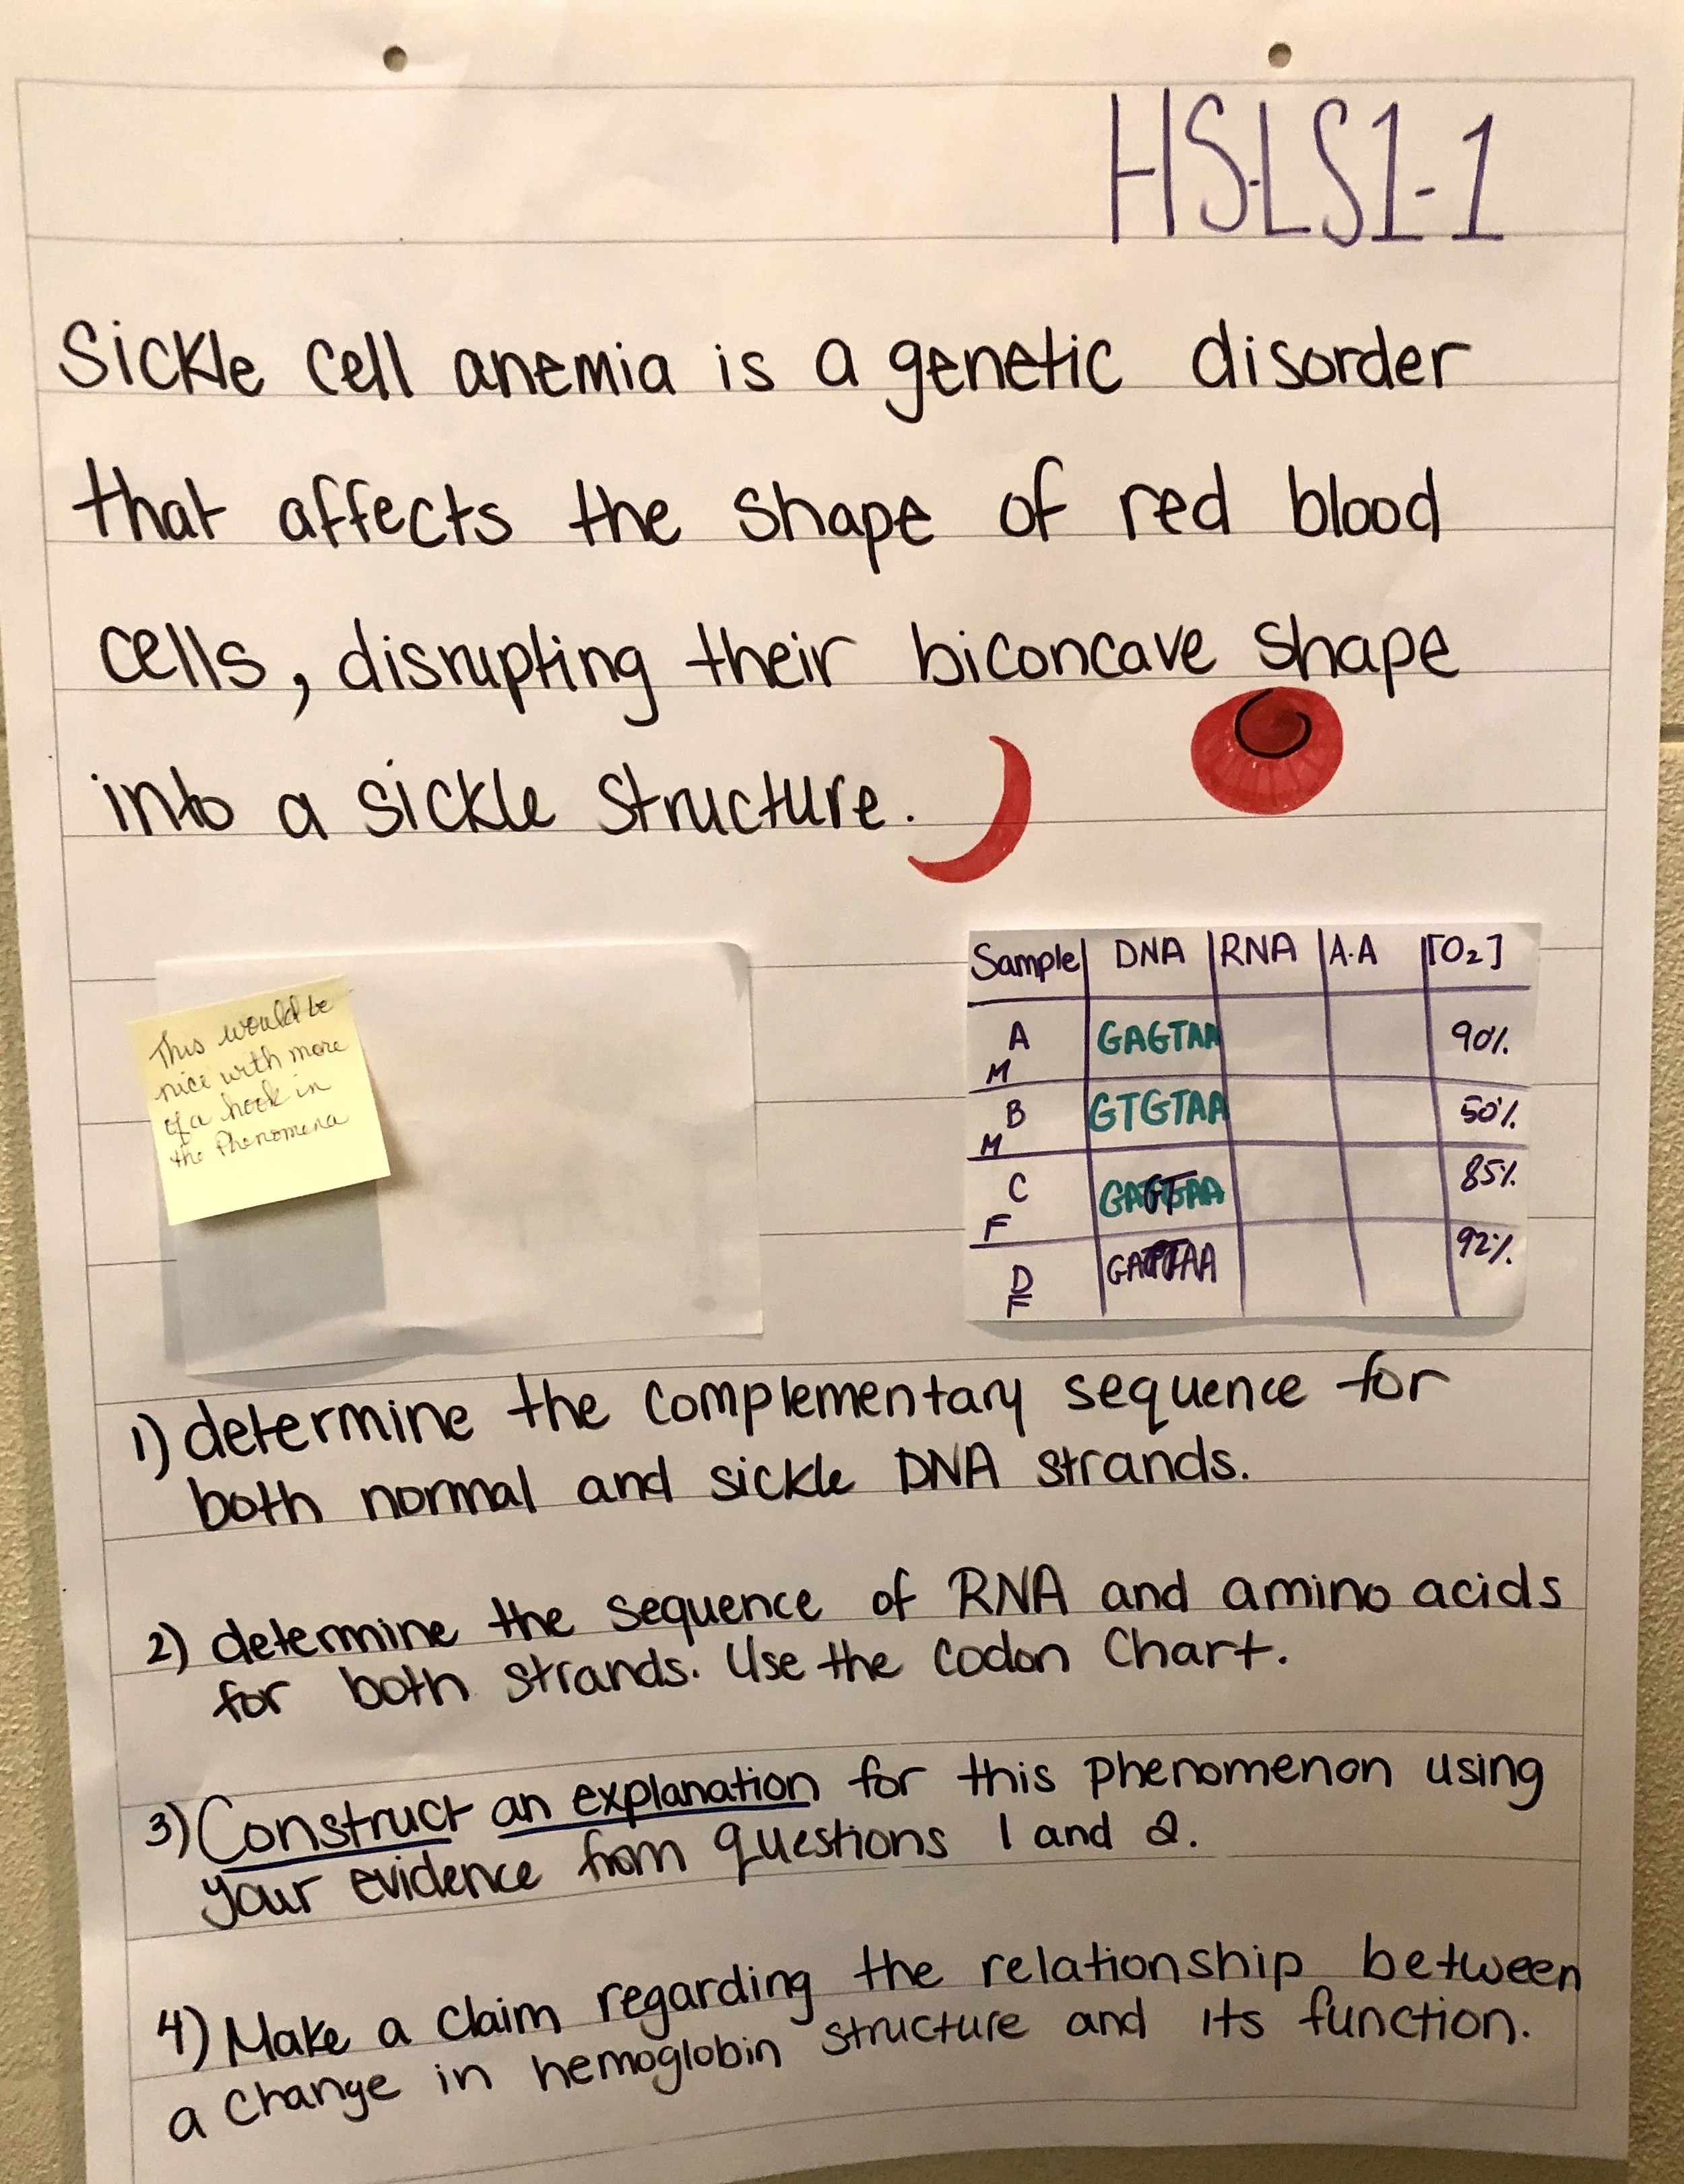 HS-LS1-1
Sickle cell anemia is a genetic disorder
that affects the shape of red blood
cells, disrupting their biconcave shape
into a sickle structure.
This would be
nice with more
of a hook in
the Phenomena
Sample DNA RNA A.A [O₂]
A M GAGTAA 90%
B M GTGTAA 50%
C F 85%
D F 92%
1) determine the complementary sequence for
both normal and sickle DNA strands.
2) determine the sequence of RNA and amino acids
for both strands. Use the codon Chart.
3) Construct an explanation for this phenomenon using
your evidence from questions 1 and 2.
4) Make a claim regarding the relationship between
a change in hemoglobin structure and its function.